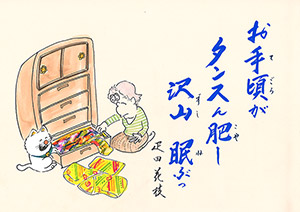 お手頃が
タンスん肥し
沢山 眠ぶっ
疋田 花枝